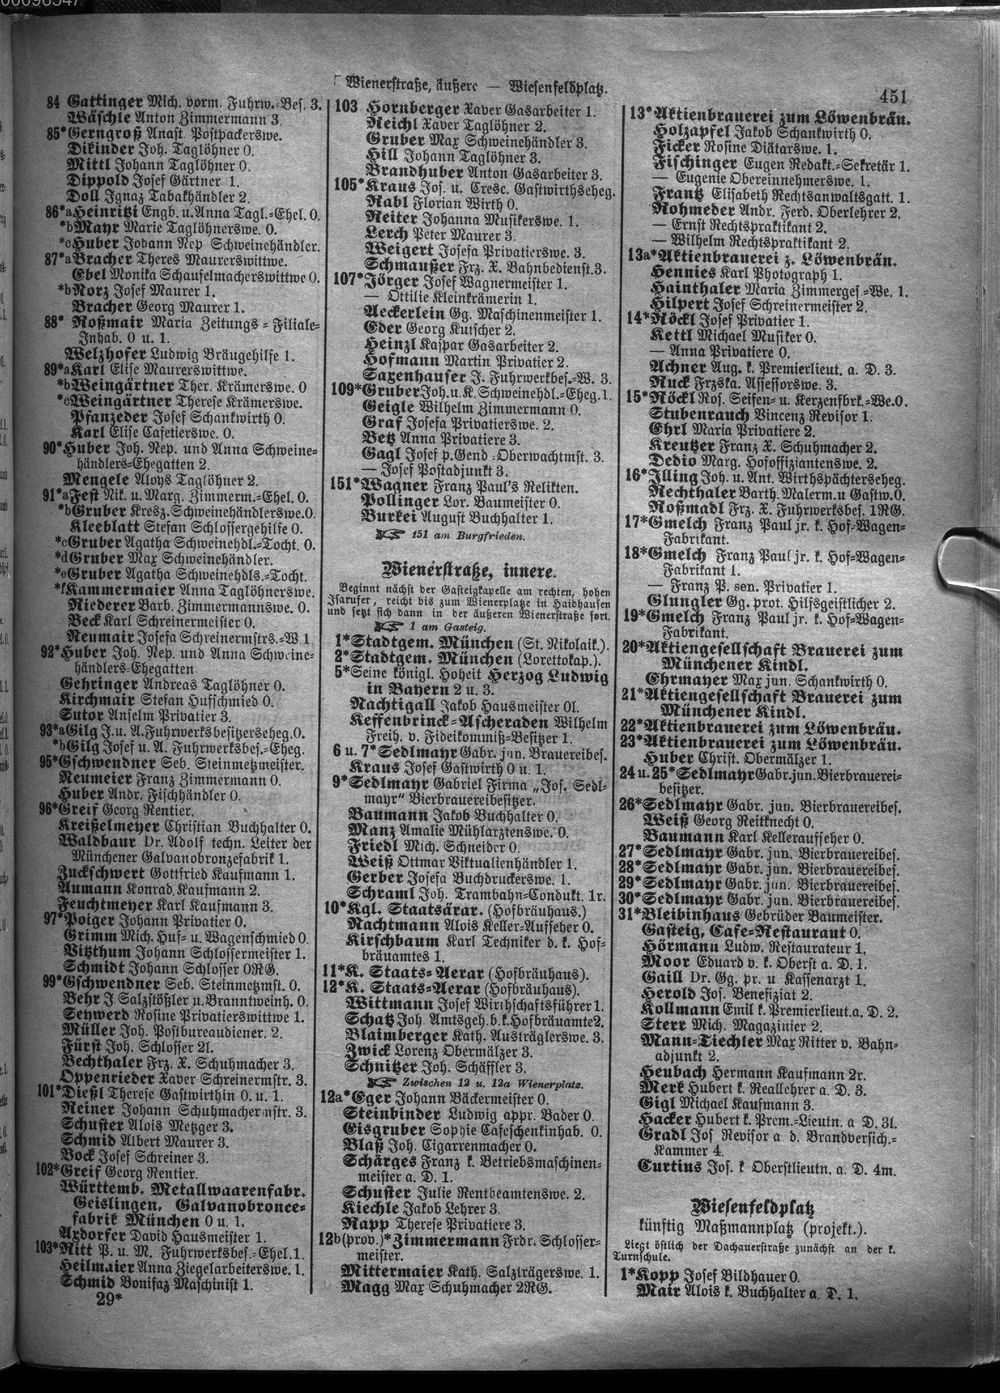 00096347
Wienerstraße, äußere — Wiesenfeldplatz.
451
84 Gattinger Mich. vorm. Fuhrw.-Bes. 3.
Wäschle Anton Zimmermann 3.
85*Gerngroß Anast. Postpackerswe.
Dikinder Joh. Taglöhner 0.
Mittl Johann Taglöhner 0.
Dippold Josef Gärtner 1.
Doll Ignaz Tabakhändler 2.
86*aHeinritzi Engb. u. Anna Tagl.-Ehel. 0.
*bMayr Marie Taglöhnerswe. 0.
*cHuber Johann Nep Schweinehändler.
87*aBracher Theres Maurerswittwe.
Ebel Monika Schaufelmacherswittwe 0.
*bNorz Josef Maurer 1.
Bracher Georg Maurer 1.
88* Roßmair Maria Zeitungs-Filiale-
Inhab. 0 u. 1.
Welzhofer Ludwig Bräugehilfe 1.
89*aKarl Elise Maurerswittwe.
*bWeingärtner Ther. Krämerswe. 0
*cWeingärtner Therese Krämerswe.
Pfanzeder Josef Schankwirth 0.
Karl Elise Cafetierswe. 0.
90*Huber Joh. Nep. und Anna Schweine-
händlers-Ehegatten 2.
Mengele Aloys Taglöhner 2.
91*aFest Nik. u. Marg. Zimmerm.-Ehel. 0.
*bGruber Kresz. Schweinehändlerswe. 0.
Kleeblatt Stefan Schlossergehilfe 0.
*cGruber Agatha Schweinehdl.-Tocht. 0.
*dGruber Max Schweinehändler.
*eGruber Agatha Schweinehdls.-Tocht.
*fKammermaier Anna Taglöhnerswe.
Niederer Barb. Zimmermannswe. 0.
Beck Karl Schreinermeister 0.
Neumair Josefa Schreinermstrs.-W 1
92*Huber Joh. Nep. und Anna Schweine-
händlers-Ehegatten
Gehringer Andreas Taglöhner 0.
Kirchmair Stefan Hufschmied 0.
Sutor Anselm Privatier 3.
93*aGilg J. u. A. Fuhrwerksbesitzerseheg. 0.
*bGilg Josef u. A. Fuhrwerksbes.-Eheg.
95*Gschwendner Seb. Steinmetzmeister.
Neumeier Franz Zimmermann 0.
Huber Andr. Fischhändler 0.
96*Greif Georg Rentier.
Kreißelmeyer Christian Buchhalter 0.
Waldbaur Dr. Adolf techn. Leiter der
Münchener Galvanobronzefabrik 1.
Zuckschwert Gottfried Kaufmann 1.
Aumann Konrad Kaufmann 2.
Feuchtmeyer Karl Kaufmann 3.
97*Poiger Johann Privatier 0.
Grimm Mich. Huf- u. Wagenschmied 0.
Vitzthum Johann Schlossermeister 1.
Schmidt Johann Schlosser 0RG.
99*Gschwendner Seb. Steinmetzmst. 0.
Behr J Salzstößler u. Branntweinh. 0.
Seywerd Rosine Privatierswittwe 1.
Müller Joh. Postbureaudiener. 2.
Fürst Joh. Schlosser 2l.
Bechthaler Frz. X. Schuhmacher 3.
Oppenrieder Xaver Schreinermstr. 3.
101*Dießl Therese Gastwirthin 0. u. 1.
Reiner Johann Schuhmachermstr. 3.
Schuster Alois Metzger 3.
Schmid Albert Maurer 3.
Bock Josef Schreiner 3.
102*Greif Georg Rentier.
Württemb. Metallwaarenfabr.
Geislingen, Galvanobronce-
fabrik München 0 u. 1.
Axdorfer David Hausmeister 1.
103*Ritt P. u. M. Fuhrwerksbes.-Ehel. 1.
Heilmaier Anna Ziegelarbeiterswe. 1.
Schmid Bonifaz Maschinist 1.
29*
103 Hornberger Xaver Gasarbeiter 1.
Reichl Xaver Taglöhner 2.
Gruber Max Schweinehändler 3.
Hill Johann Taglöhner 3.
Brandhuber Anton Gasarbeiter 3.
105*Kraus Jos. u. Cresc. Gastwirthseheg.
Rabl Florian Wirth 0.
Reiter Johanna Musikerswe. 1.
Lerch Peter Maurer 3.
Weigert Josefa Privatierswe. 3.
Schmaußer Frz. X. Bahnbedienst. 3.
107*Jörger Josef Wagnermeister 1.
— Ottilie Kleinkrämerin 1.
Aeckerlein Gg. Maschinenmeister 1.
Eder Georg Kutscher 2.
Heinzl Kaspar Gasarbeiter 2.
Hofmann Martin Privatier 2.
Saxenhauser J. Fuhrwerkbes.-W. 3.
109*Gruber Joh. u. K. Schweinehdl.-Eheg. 1.
Geigle Wilhelm Zimmermann 0.
Graf Josefa Privatierswe. 2.
Betz Anna Privatiere 3.
Gagl Josef p. Gend-Oberwachtmst. 3.
— Josef Postadjunkt 3.
151*Wagner Franz Paul's Relikten.
Pollinger Lor. Baumeister 0.
Burkei August Buchhalter 1.
☞ 151 am Burgfrieden.
Wienerstraße, innere.
Beginnt nächst der Gasteigkapelle am rechten, hohen
Isarufer, reicht bis zum Wienerplatze in Haidhausen
und setzt sich dann in der äußeren Wienerstraße fort.
☞ 1 am Gasteig.
1*Stadtgem. München (St. Nikolaik.).
2*Stadtgem. München (Lorettokap.).
5*Seine königl. Hoheit Herzog Ludwig
in Bayern 2 u. 3.
Nachtigall Jakob Hausmeister 0l.
Keffenbrinck-Ascheraden Wilhelm
Freih. v. Fideikommiß-Besitzer 1.
6 u. 7*Sedlmayr Gabr. jun. Brauereibes.
Kraus Josef Gastwirth 0 u. 1.
9*Sedlmayr Gabriel Firma „Jos. Sedl-
mayr“ Bierbrauereibesitzer.
Baumann Jakob Buchhalter 0.
Manz Amalie Mühlarztenswe. 0.
Friedl Mich. Schneider 0.
Weiß Ottmar Viktualienhändler 1.
Gerber Josefa Buchdruckerswe. 1.
Schraml Joh. Trambahn-Condukt. 1r.
10*Kgl. Staatsärar. (Hofbräuhaus.)
Nachtmann Alois Keller-Aufseher 0.
Kirschbaum Karl Techniker d. k. Hof-
bräuamtes 1.
11*K. Staats-Aerar (Hofbräuhaus).
12*K. Staats-Aerar (Hofbräuhaus).
Wittmann Josef Wirthschaftsführer 1.
Schatz Joh. Amtsgeh. b. k. Hofbräuamte 2.
Blaimberger Kath. Austräglerswe. 3.
Zwick Lorenz Obermälzer 3.
Schnitzer Joh. Schäffler 3.
☞ Zwischen 12 u. 12a Wienerplatz.
12a*Eger Johann Bäckermeister 0.
Steinbinder Ludwig appr. Bader 0.
Eisgruber Sophie Cafeschenkinhab. 0.
Blaß Joh. Cigarrenmacher 0.
Schärges Franz k. Betriebsmaschinen-
meister a. D. 1.
Schuster Julie Rentbeamtenswe. 2.
Kiechle Jakob Lehrer 3.
Rapp Therese Privatiere 3.
12b(prov.)*Zimmermann Frdr. Schlosser-
meister.
Mittermaier Kath. Salzträgerswe. 1.
Magg Max Schuhmacher 2RG.
13*Aktienbrauerei zum Löwenbräu.
Holzapfel Jakob Schankwirth 0.
Ficker Rosine Diätarswe. 1.
Fischinger Eugen Redakt.-Sekretär 1.
— Eugenie Obereinnehmerswe. 1.
Frantz Elisabeth Rechtsanwaltsgatt. 1.
Rohmeder Andr. Ferd. Oberlehrer 2.
— Ernst Rechtspraktikant 2.
— Wilhelm Rechtspraktikant 2.
13a*Aktienbrauerei z. Löwenbräu.
Hennies Karl Photograph 1.
Hainthaler Maria Zimmerges.-We. 1.
Hilpert Josef Schreinermeister 2.
14*Röckl Josef Privatier 1.
Kettl Michael Musiker 0.
— Anna Privatiere 0.
Achner Aug. k. Premierlieut. a. D. 3.
Ruck Frzska. Assessorswe. 3.
15*Röckl Ros. Seifen- u. Kerzenfbrk.-We. 0.
Stubenrauch Vincenz Revisor 1.
Ehrl Maria Privatiere 2.
Kreutzer Franz X. Schuhmacher 2.
Dedio Marg. Hofoffiziantenswe. 2.
16*Illing Joh. u. Ant. Wirthspächterseheg.
Rechthaler Barth. Malerm. u Gastw. 0.
Roßmadl Frz. X. Fuhrwerksbes. 1RG.
17*Gmelch Franz Paul jr. k. Hof-Wagen-
Fabrikant.
18*Gmelch Franz Paul jr. k. Hof-Wagen-
Fabrikant 1.
— Franz P. sen. Privatier 1.
Glungler Gg. prot. Hilfsgeistlicher 2.
19*Gmelch Franz Paul jr. k. Hof-Wagen-
Fabrikant.
20*Aktiengesellschaft Brauerei zum
Münchener Kindl.
Ehrmayer Max jun. Schankwirth 0.
21*Aktiengesellschaft Brauerei zum
Münchener Kindl.
22*Aktienbrauerei zum Löwenbräu.
23*Aktienbrauerei zum Löwenbräu.
Huber Christ. Obermälzer 1.
24 u. 25*Sedlmayr Gabr. jun. Bierbrauerei-
besitzer.
26*Sedlmayr Gabr. jun. Bierbrauereibes.
Weiß Georg Reitknecht 0.
Baumann Karl Kelleraufseher 0.
27*Sedlmayr Gabr. jun. Bierbrauereibes.
28*Sedlmayr Gabr. jun. Bierbrauereibes.
29*Sedlmayr Gabr. jun. Bierbrauereibes.
30*Sedlmayr Gabr. jun. Bierbrauereibes.
31*Bleibinhaus Gebrüder Baumeister.
Gasteig, Cafe-Restaurant 0.
Hörmann Ludw. Restaurateur 1.
Moor Eduard v. k. Oberst a. D. 1.
Gaill Dr. Gg. pr. u. Kassenarzt 1.
Herold Jos. Benefiziat 2.
Kollmann Emil k. Premierlieut. a. D. 2.
Sterr Mich. Magazinier 2.
Mann-Tiechler Max Ritter v. Bahn-
adjunkt 2.
Heubach Hermann Kaufmann 2r.
Merk Hubert k. Reallehrer a. D. 3.
Gigl Michael Kaufmann 3.
Hacker Hubert k. Prem.-Lieutn. a D. 3l.
Gradl Jos Revisor a d. Brandversich.-
Kammer 4.
Curtius Jos. k Oberstlieutn. a. D. 4m.
Wiesenfeldplatz
künftig Maßmannplatz (projekt.).
Liegt östlich der Dachauerstraße zunächst an der k.
Turnschule.
1*Kopp Josef Bildhauer 0.
Mair Alois k. Buchhalter a. D. 1.